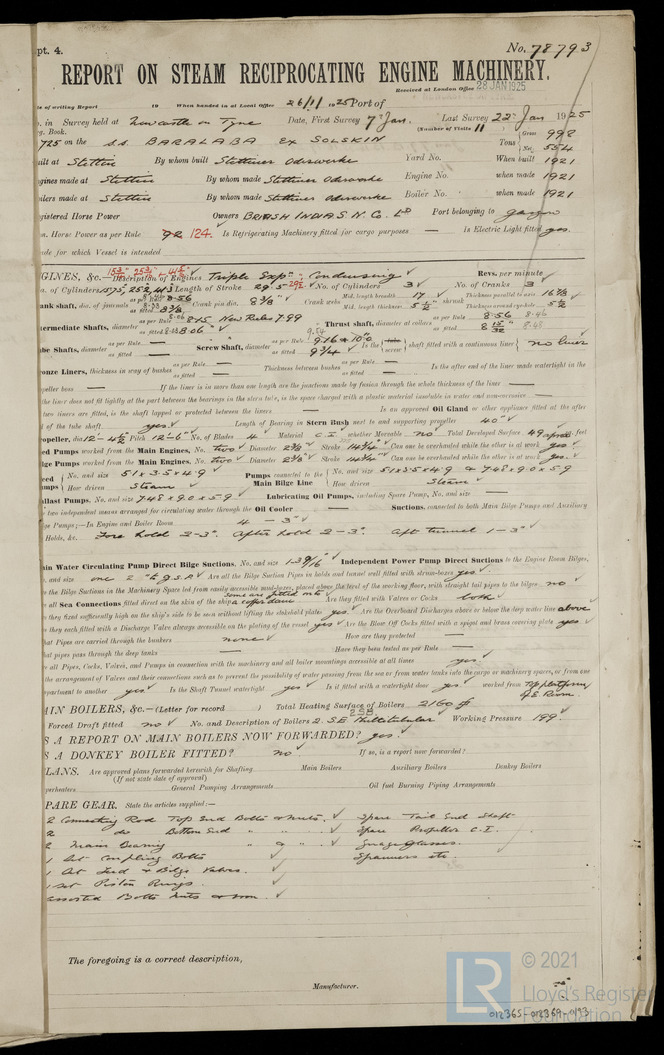 pt. 4.
No. 78793
REPORT ON STEAM RECIPROCATING ENGINE MACHINERY.
Received at London Office 28 JAN 1925
of writing Report 19 When handed in at Local Office 26/1/ 1925 Port of
in Survey held at Newcastle on Tyne Date, First Survey 7th Jan. Last Survey 22 Jan 1925
Book. (Number of Visits 11)
725 on the S.S. BARALABA Ex SOLSKIN Tons Gross 998 Net 554
uilt at Stettin By whom built Stettiner Oderwerke Yard No. When built 1921
gines made at Stettin By whom made Stettiner Oderwerke Engine No. when made 1921
ilers made at Stettin By whom made Stettiner Oderwerke Boiler No. when made 1921
gistered Horse Power Owners BRITISH INDIA S. N. Co. Ld Port belonging to Glasgow
m. Horse Power as per Rule 92 124. Is Refrigerating Machinery fitted for cargo purposes — Is Electric Light fitted yes.
ade for which Vessel is intended
GINES, &c.—Description of Engines Triple Expn Condensing Revs. per minute
a. of Cylinders Length of Stroke 29.5 No. of Cylinders 3 No. of Cranks 3
ank shaft, dia. of journals as per Rule 8.56 as fitted 8 3/8" Crank pin dia. 8 3/8" Crank webs Mid. length breadth 17 Mid. length thickness 5 1/2 shrunk Thickness parallel to axis Thickness around eye-hole 5 1/2
termediate Shafts, diameter as per Rule 8.15 New Rules 7.99 as fitted 8.06" Thrust shaft, diameter at collars as per Rule 8.56 8.46 as fitted 8 15/32" 8.43
be Shafts, diameter as per Rule — as fitted — Screw Shaft, diameter as per Rule 9.16 as fitted 9 3/4 Is the tube screw shaft fitted with a continuous liner no liner
onze Liners, thickness in way of bushes as per Rule — as fitted — Thickness between bushes as per Rule — as fitted — Is the after end of the liner made watertight in the
peller boss — If the liner is in more than one length are the joints made by fusion through the whole thickness of the liner —
the liner does not fit tightly at the part between the bearings in the stern tube, is the space charged with a plastic material insoluble in water and non-corrosive —
two liners are fitted, is the shaft lapped or protected between the liners — Is an approved Oil Gland or other appliance fitted at the after
d of the tube shaft yes Length of Bearing in Stern Bush next to and supporting propeller 40"
opeller, dia 12'-4 1/2 Pitch 12'-6" No. of Blades 4 Material C.I. whether Moveable no Total Developed Surface 49 sq. feet
ed Pumps worked from the Main Engines, No. two Diameter 2 3/8" Stroke 14 3/4" Can one be overhauled while the other is at work yes.
lge Pumps worked from the Main Engines, No. two Diameter 2 3/8" Stroke 14 3/4" Can one be overhauled while the other is at work yes.
eed umps No. and size 51 x 3.5 x 4.9 How driven Steam Pumps connected to the Main Bilge Line No. and size 51 x 3.5 x 4.9 & 7.48 x 9.0 x 5.9 How driven Steam
allast Pumps, No. and size 7.48 x 9.0 x 5.9 Lubricating Oil Pumps, including Spare Pump, No. and size —
two independent means arranged for circulating water through the Oil Cooler — Suctions, connected to both Main Bilge Pumps and Auxiliary
ge Pumps;—In Engine and Boiler Room 4 - 3"
Holds, &c. Fore hold 2-3". After hold 2-3". Aft tunnel 1-3"
ain Water Circulating Pump Direct Bilge Suctions, No. and size 1-3 9/16" Independent Power Pump Direct Suctions to the Engine Room Bilges,
and size one Are all the Bilge Suction Pipes in holds and tunnel well fitted with strum-boxes yes
the Bilge Suctions in the Machinery Space led from easily accessible mud-boxes, placed above the level of the working floor, with straight tail pipes to the bilges no
all Sea Connections fitted direct on the skin of the ship some are fitted onto a cofferdam Are they fitted with Valves or Cocks both
they fixed sufficiently high on the ship's side to be seen without lifting the stokehold plates yes Are the Overboard Discharges above or below the deep water line above
they each fitted with a Discharge Valve always accessible on the plating of the vessel yes Are the Blow Off Cocks fitted with a spigot and brass covering plate yes
hat Pipes are carried through the bunkers none How are they protected —
hat pipes pass through the deep tanks — Have they been tested as per Rule —
all Pipes, Cocks, Valves, and Pumps in connection with the machinery and all boiler mountings accessible at all times yes.
the arrangement of Valves and their connections such as to prevent the possibility of water passing from the sea or from water tanks into the cargo or machinery spaces, or from one
partment to another yes Is the Shaft Tunnel watertight yes Is it fitted with a watertight door yes. worked from Top platform of E. Room.
AIN BOILERS, &c.—(Letter for record ) Total Heating Surface of Boilers 2160
Forced Draft fitted no No. and Description of Boilers 2. S.E. Multitubular Working Pressure 199.
S A REPORT ON MAIN BOILERS NOW FORWARDED? yes.
S A DONKEY BOILER FITTED? no If so, is a report now forwarded?
LANS. Are approved plans forwarded herewith for Shafting Main Boilers Auxiliary Boilers Donkey Boilers
(If not state date of approval)
perheaters General Pumping Arrangements Oil fuel Burning Piping Arrangements
PARE GEAR. State the articles supplied:—
2 Connecting Rod Top End Bolts & nuts. Spare Tail End Shaft
2 do Bottom End " " Spare Propeller C.I.
2 Main Bearing " & " Gauge glasses.
1 Set Coupling Bolts Spanners etc.
1 Set Feed & Bilge Valves.
1 set Piston Rings.
assorted Bolts Nuts & iron.
The foregoing is a correct description,
Manufacturer.
LR © 2021
Lloyd's Register
Foundation
012365-012369-0193